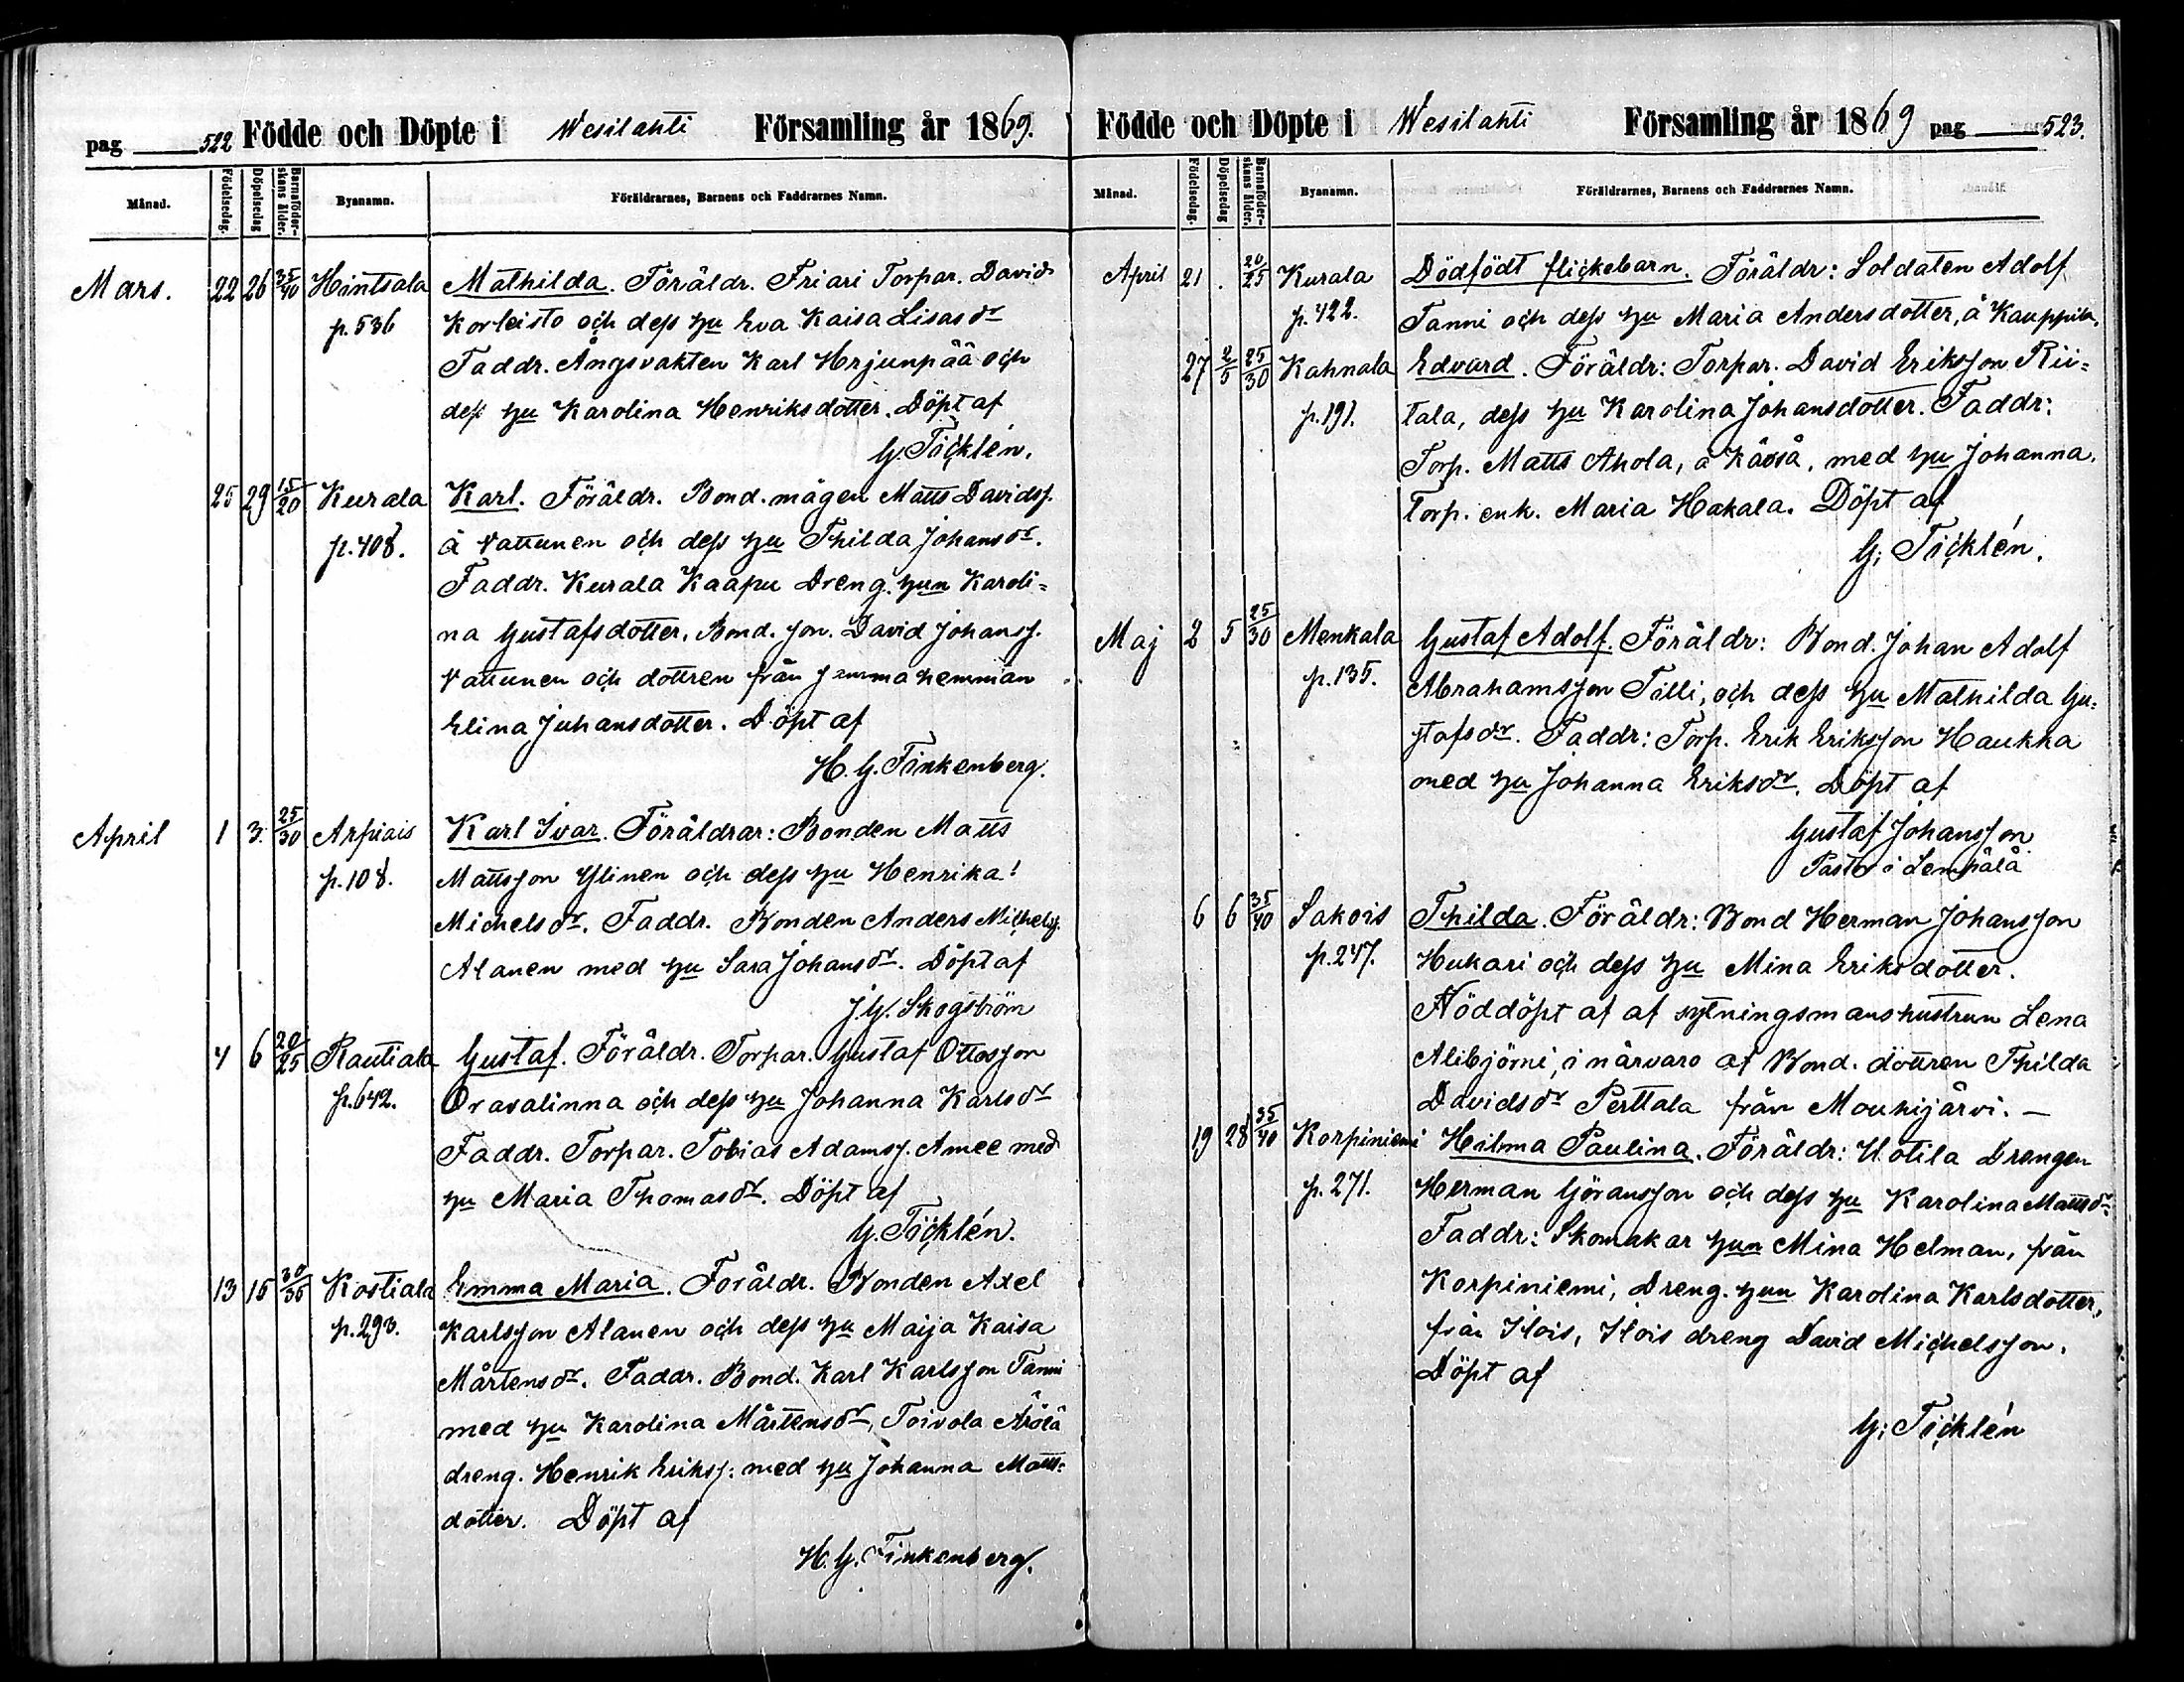 pag 522 Födde och Döpte i Wesilahti Församling år 1869.
Månad. Födelsedag. Döpelsedag Barnaföderskans ålder. Byanamn. Föräldrarnes, Barnens och Faddrarnes Namn.
Mars. 22 26 35/40 Hintsala Mathilda. Föräldr. Friari Torpar. David
p. 536 Korteisto och dess hu Eva Kaisa Lisasdr
Faddr. Ängsvakten Karl Horjunpää och
dess hu Karolina Henriksdotter. Döpt af
G. Ticklén.
25 29 15/20 Kurala Karl. Föräldr. Bond. mågen Matts Davidss.
p. 408. å Vattunen och dess hu Thilda Johansdr.
Faddr. Kurala Kaapu Dreng. hun Karoli=
na Gustafsdotter, Bond. son. David Johanss.
Vattunen och dottren från samma hemman
Elina Juhansdotter. Döpt af
H. G. Finkenberg.
April 1 3. 25/30 Arpiais Karl Ivar. Föräldrar: Bonden Matts
p. 108. Mattsson Ylinen och dess hu Henrika!
Michelsdr. Faddr. Bonden Anders Michelss.
Alanen med hu Sara Johansdr. Döpt af
J. G. Skogström
4 6 20/25 Rautiala Gustaf. Föräldr. Torpar. Gustaf Ottosson
p. 642. Oravalinna och dess hu Johanna Karlsdr
Faddr. Torpar. Tobias Adamss. Amee med
hu Maria Thomasdr. Döpt af
G. Ticklén.
13 15 30/35 Kostiala Emma Maria. Foräldr. Bonden Axel
p. 293. Karlsson Alanen och dess hu Maija Kaisa
Mårtensdr. Faddr. Bond. Karl Karlsson Tanni
med hu Karolina Mårtensdr, Toivola
dreng. Henrik Erikss. med hu Johanna Matts=
dotter. Döpt af
H. G. Finkenberg.
Födde och Döpte i Wesilahti Församling år 1869 pag 523.
Månad. Födelsedag. Döpelsedag Barnaföderskans ålder. Byanamn. Föräldrarnes, Barnens och Faddrarnes Namn.
April 21 . 20/25 Kurala Dödfödt flickebarn. Föräldr: Soldaten Adolf
p. 422. Tanni och dess hu Maria Andersdotter, å Kauppila.
27 2/5 25/30 Kahnala Edvard. Föräldr: Torpar. David Eriksson Rii=
p. 191. tala, dess hu Karolina Johansdotter. Faddr:
Torp. Matts Ahola, å med hu Johanna.
Torp. enk. Maria Hakala. Döpt af
G. Ticklén.
Maj 2 5 25/30 Menkala Gustaf Adolf. Föräldr: Bond. Johan Adolf
p. 135. Abrahamsson Tilli, och dess hu Mathilda Gu=
stafsdr. Faddr: Torp. Erik Eriksson Haukka
med hu Johanna Eriksdr. Döpt af
Gustaf Johansson
Pastor i Lempälä
6 6 35/40 Sakois Thilda. Föräldr: Bond Herman Johansson
p. 247. Hukari och dess hu Mina Eriksdotter.
Nöddöpt af af sytningsmanshustrun Lena
Alibjörni, i närvaro af Bond. dottren Thilda
Davidsdr Perttala från Mouhijärvi. —
19 28 35/40 Korpiniemi Hilma Paulina. Föräldr: Uotila Drengen
p. 271. Herman Göransson och dess hu Karolina Mattsdr.
Faddr: Skomakar hun Mina Helman, från
Korpiniemi, Dreng. hun Karolina Karlsdotter,
från Ilois, Ilois dreng David Michelsson.
Döpt af
G. Ticklén